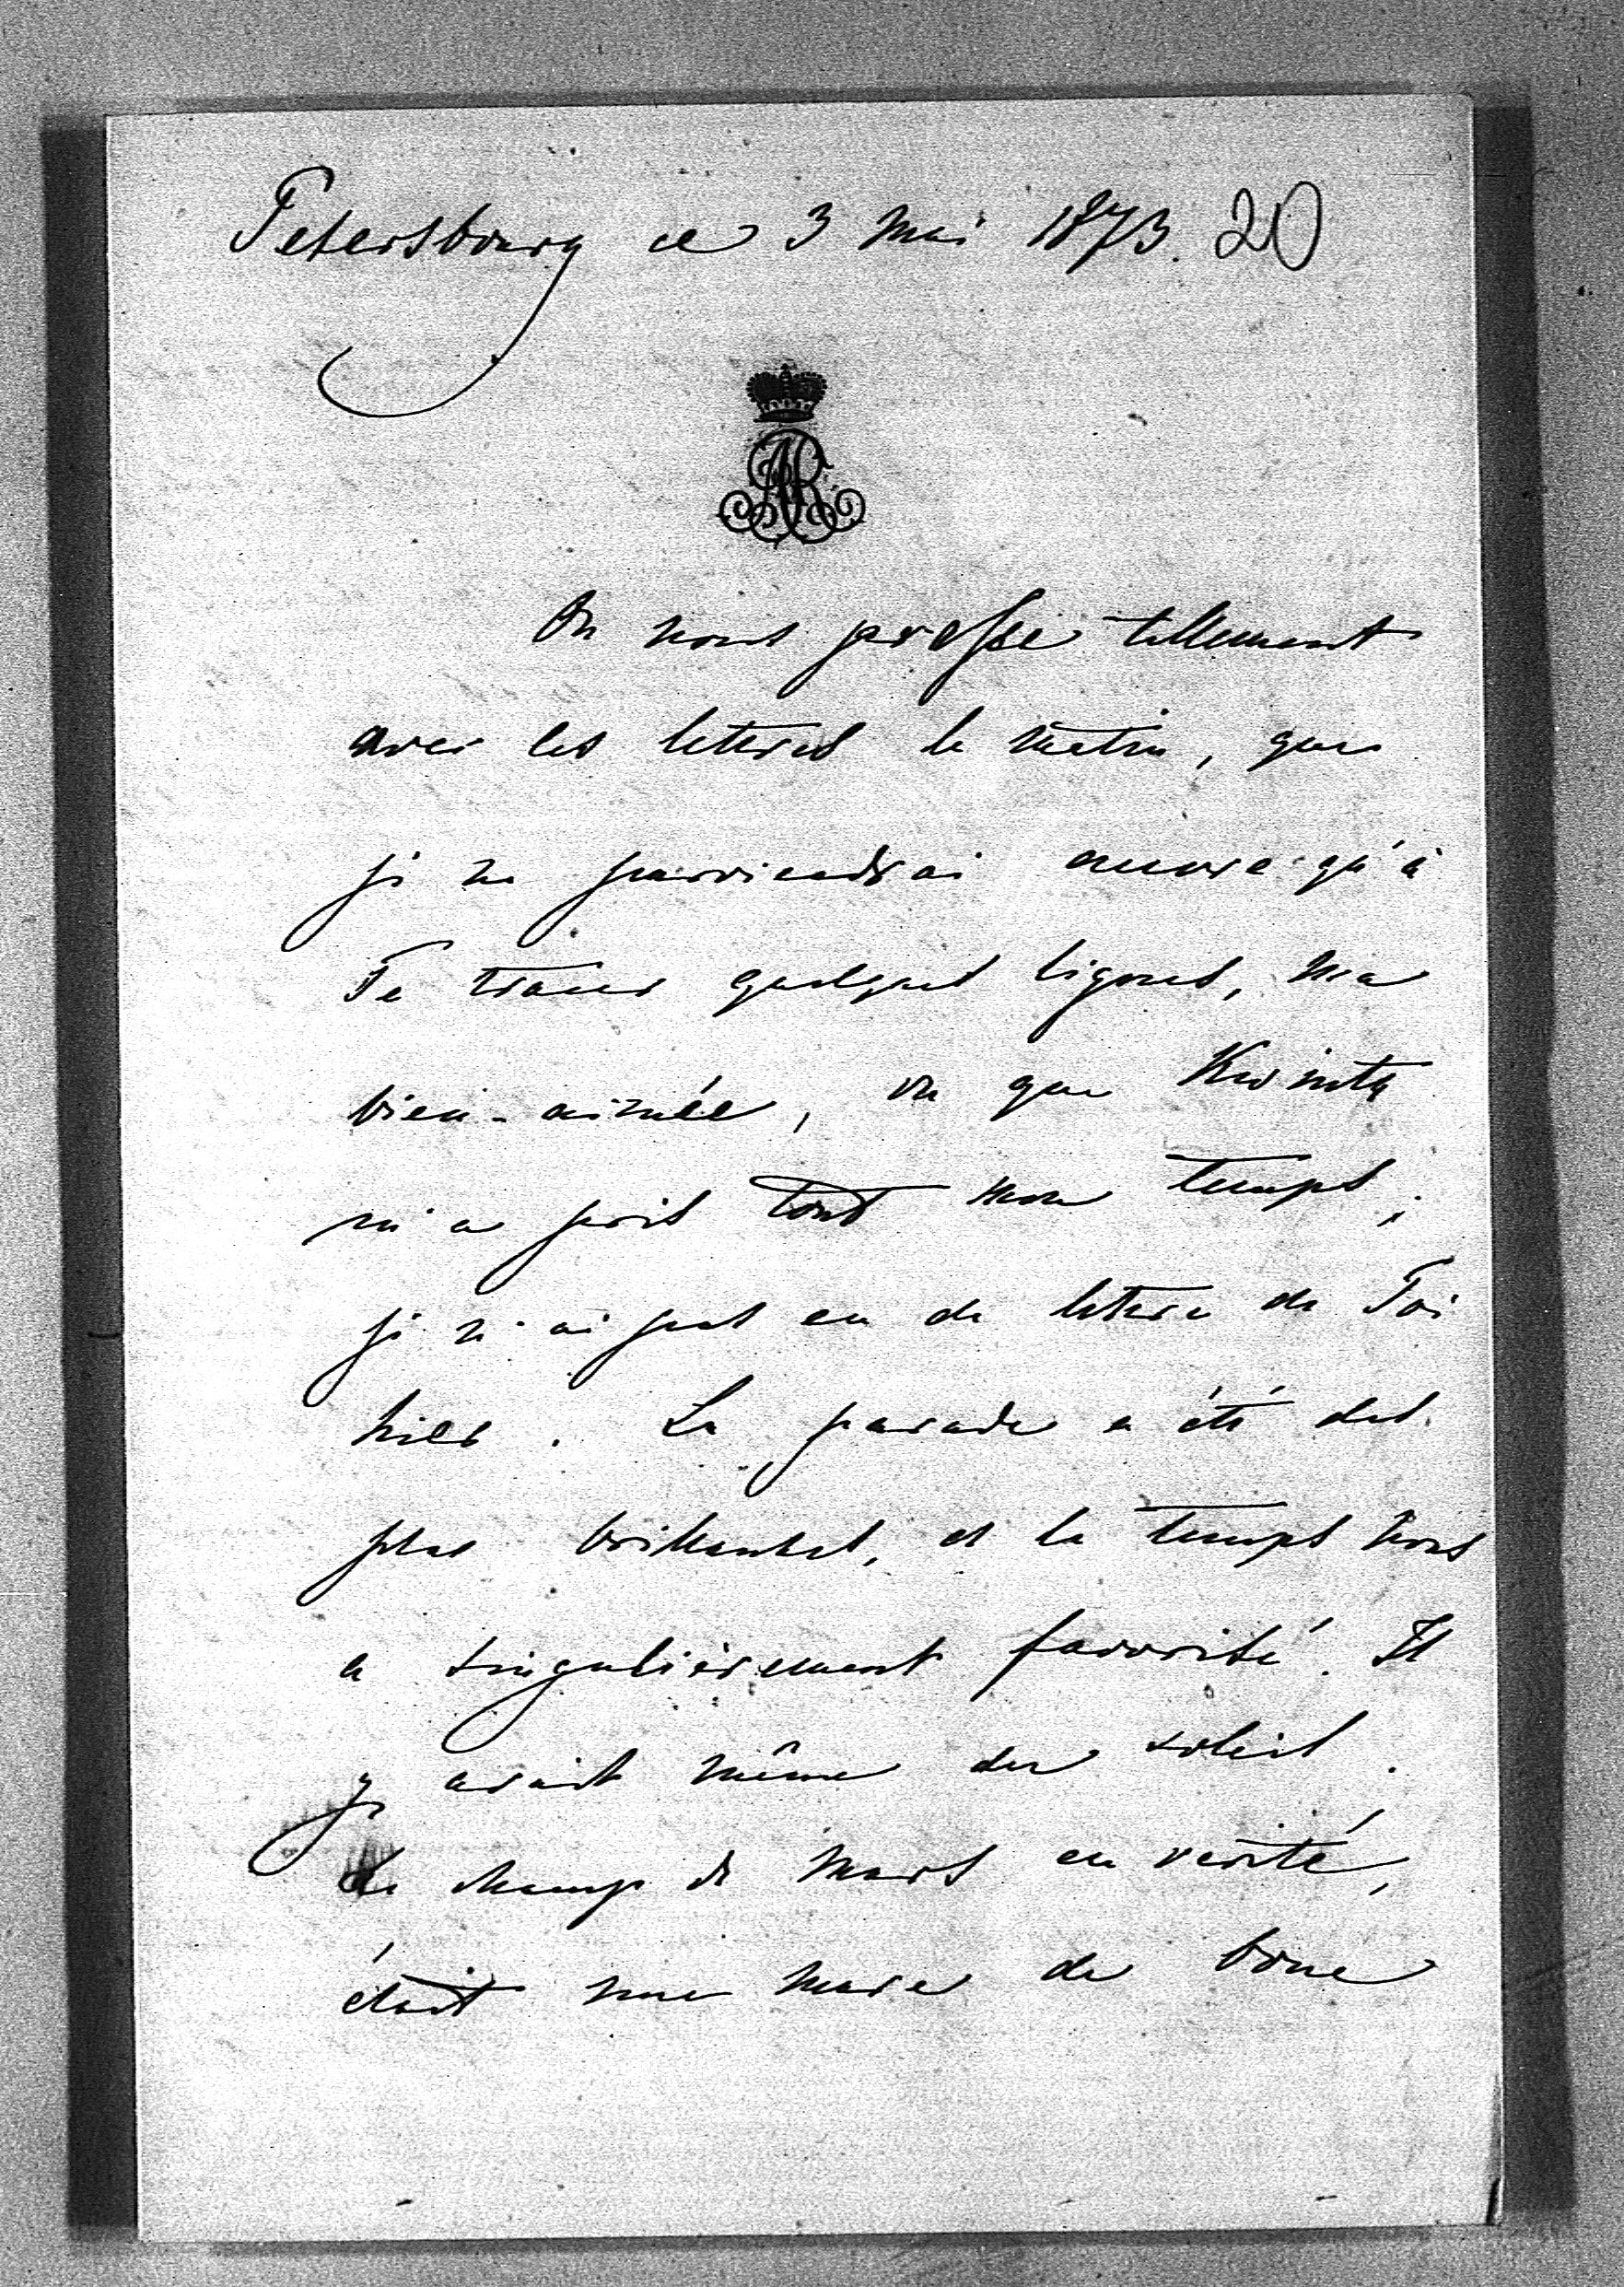 Petersbourg ce 3 Mai 1873. 20
AR
On nous presse tellement
avec les lettres le matin, que
je ne parviendrai encore qu'à
Te tracer quelques lignes, ma
bien-aimée, vu que
m'a pris tout mon temps;
je n'ai pas eu de lettre de Toi
hier. La parade a été des
plus brillantes, et le temps nous
a singulièrement favorisé. Il
y avait même du soleil.
Le champ de Mars en vérité,
était une mare de boue